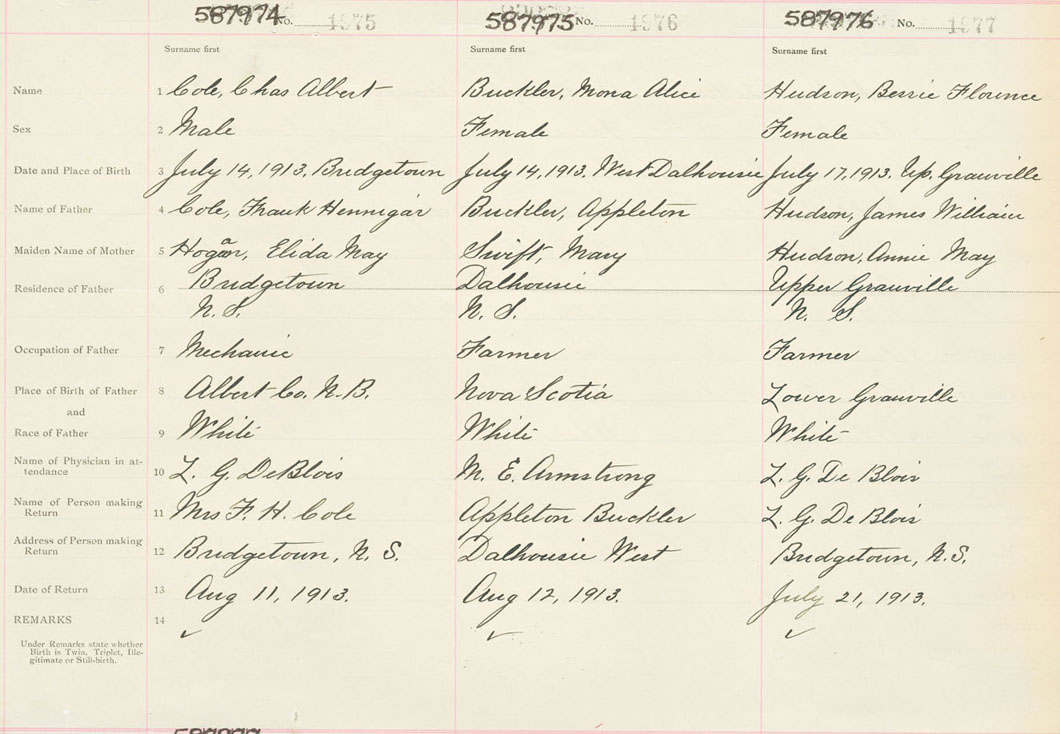 587974 No. 1975 587975 No. 1976 587976 No. 1977
Surname first Surname first Surname first
Name 1 Cole, Chas Albert Buckler, Mona Alice Hudson, Bessie Florence
Sex 2 Male Female Female
Date and Place of Birth 3 July 14, 1913. Bridgetown July 14, 1913. West Dalhousie July 17, 1913. Up. Granville
Name of Father 4 Cole, Frank Hennigar Buckler, Appleton Hudson, James William
Maiden Name of Mother 5 Hogan, Elida May Swift, Mary Hudson, Annie May
Residence of Father 6 Bridgetown Dalhousie Upper Granville
N. S. N. S. N. S.
Occupation of Father 7 Mechanic Farmer Farmer
Place of Birth of Father 8 Albert Co. N. B. Nova Scotia Lower Granville
and
Race of Father 9 White White White
Name of Physician in at-
tendance 10 L. G. DeBlois M. E. Armstrong L. G. De Blois
Name of Person making
Return 11 Mrs F. H. Cole Appleton Buckler L. G. De Blois
Address of Person making
Return 12 Bridgetown, N. S. Dalhousie West Bridgetown, N.S.
Date of Return 13 Aug 11, 1913. Aug 12, 1913. July 21, 1913.
REMARKS 14
Under Remarks state whether
Birth is Twin, Triplet, Ille-
gitimate or Still-birth.